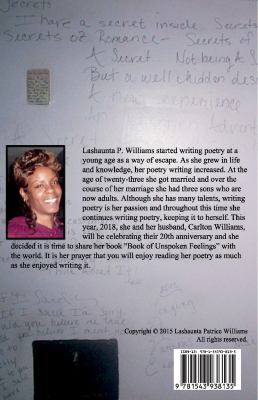 Secrets
I have a secret inside Secrets
Secrets of Romance - Secrets of
A Secret Not being A S
But a well hidden des
A new experience
An
Advent
Lashaunta P. Williams started writing poetry at a
young age as a way of escape. As she grew in life
and knowledge, her poetry writing increased. At the
age of twenty-three she got married and over the
course of her marriage she had three sons who are
now adults. Although she has many talents, writing
poetry is her passion and throughout this time she
continues writing poetry, keeping it to herself. This
year, 2018, she and her husband, Carlton Williams,
will be celebrating their 20th anniversary and she
decided it is time to share her book "Book of Unspoken Feelings" with
the world. It is her prayer that you will enjoy reading her poetry as much
as she enjoyed writing it.
If I said I'm sorry
Copyright © 2015 Lashaunta Patrice Williams
All rights reserved.
9 781543 938135